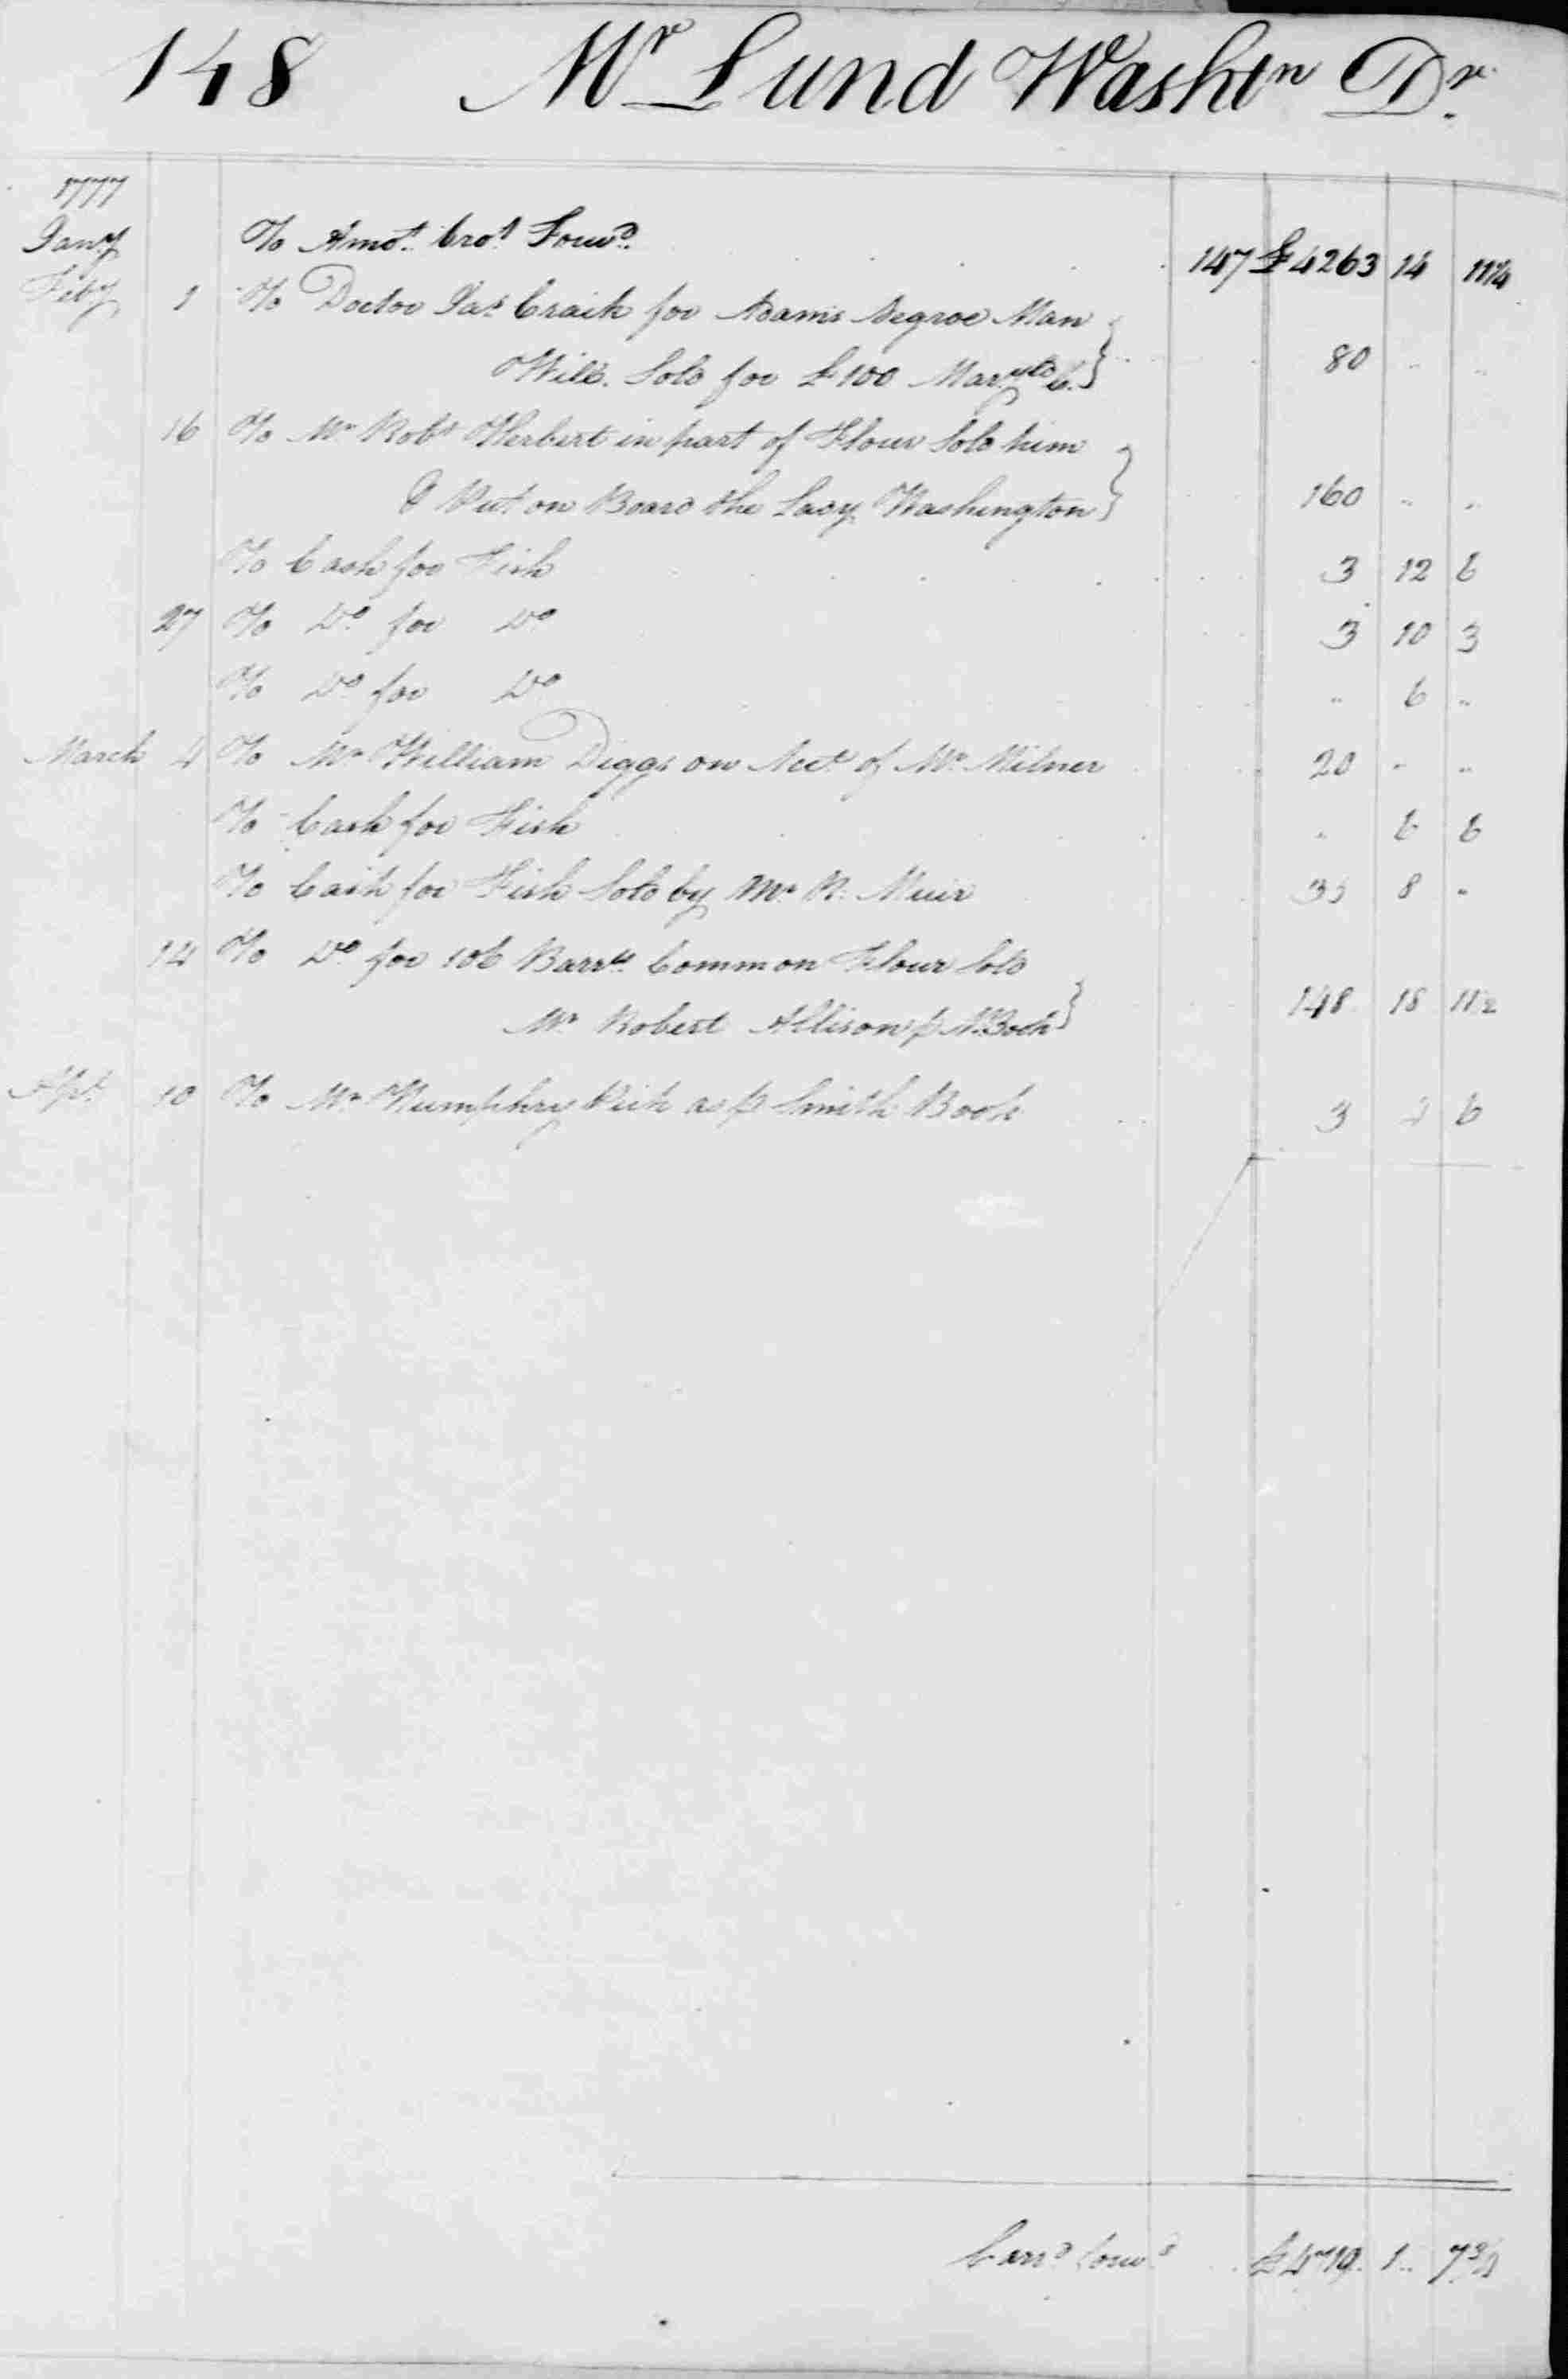 148 Mr Lund Washtn Dr.
1777
Jany To Amot. brot. Forwd. 147 £4263 14 11¼
Feby 1 To Doctor Jas. Craik for Adams Negroe Man
Will. Sold for £100 Marylds C. } 80 " "
16 To Mr Robt Herbert in part of Flour Sold him
& Put on Board the Lady Washington } 160 " "
To Cash for Fish 3 12 6
27 To Do for Do 3 10 3
To Do for Do " 6 "
March 4 To Mr William Diggs on Acct. of Mr. Milner 20 " "
To Cash for Fish " 6 6
To Cash for Fish Sold by Mr. R. Muir 35 8 "
14 To Do for 106 Barrls. Common Flour Sold
Mr Robert Allison p M.Book } 148 18 11½
Apl. 10 To Mr Humphry Peik as p Smith Book 3 4 6
Carrd. forwd £4719 1 7¾